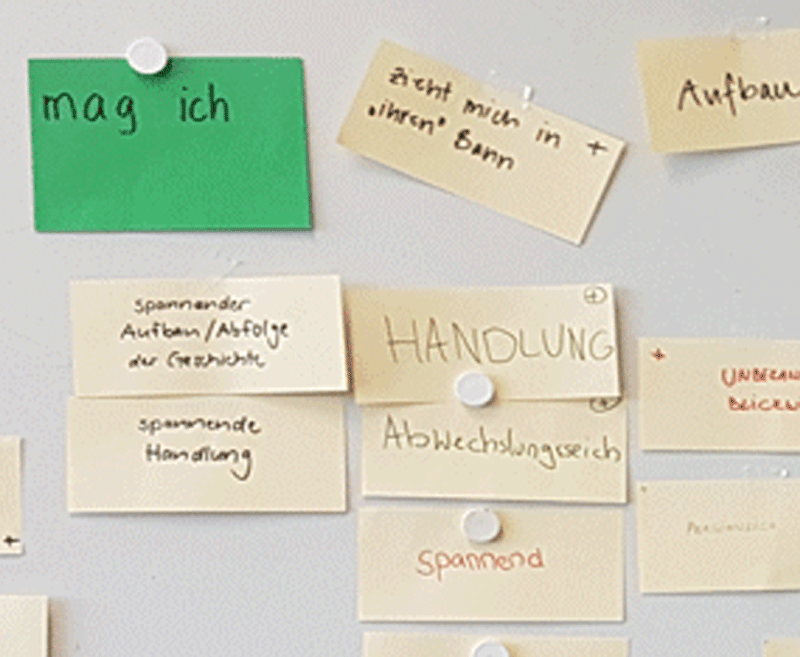 mag ich
zieht mich in
"ihren" Bann
+
Aufbau
spannender
Aufbau/Abfolge
der Geschichte
+
HANDLUNG
spannende
Handlung
+
Abwechslungsreich
+
Spannend
+